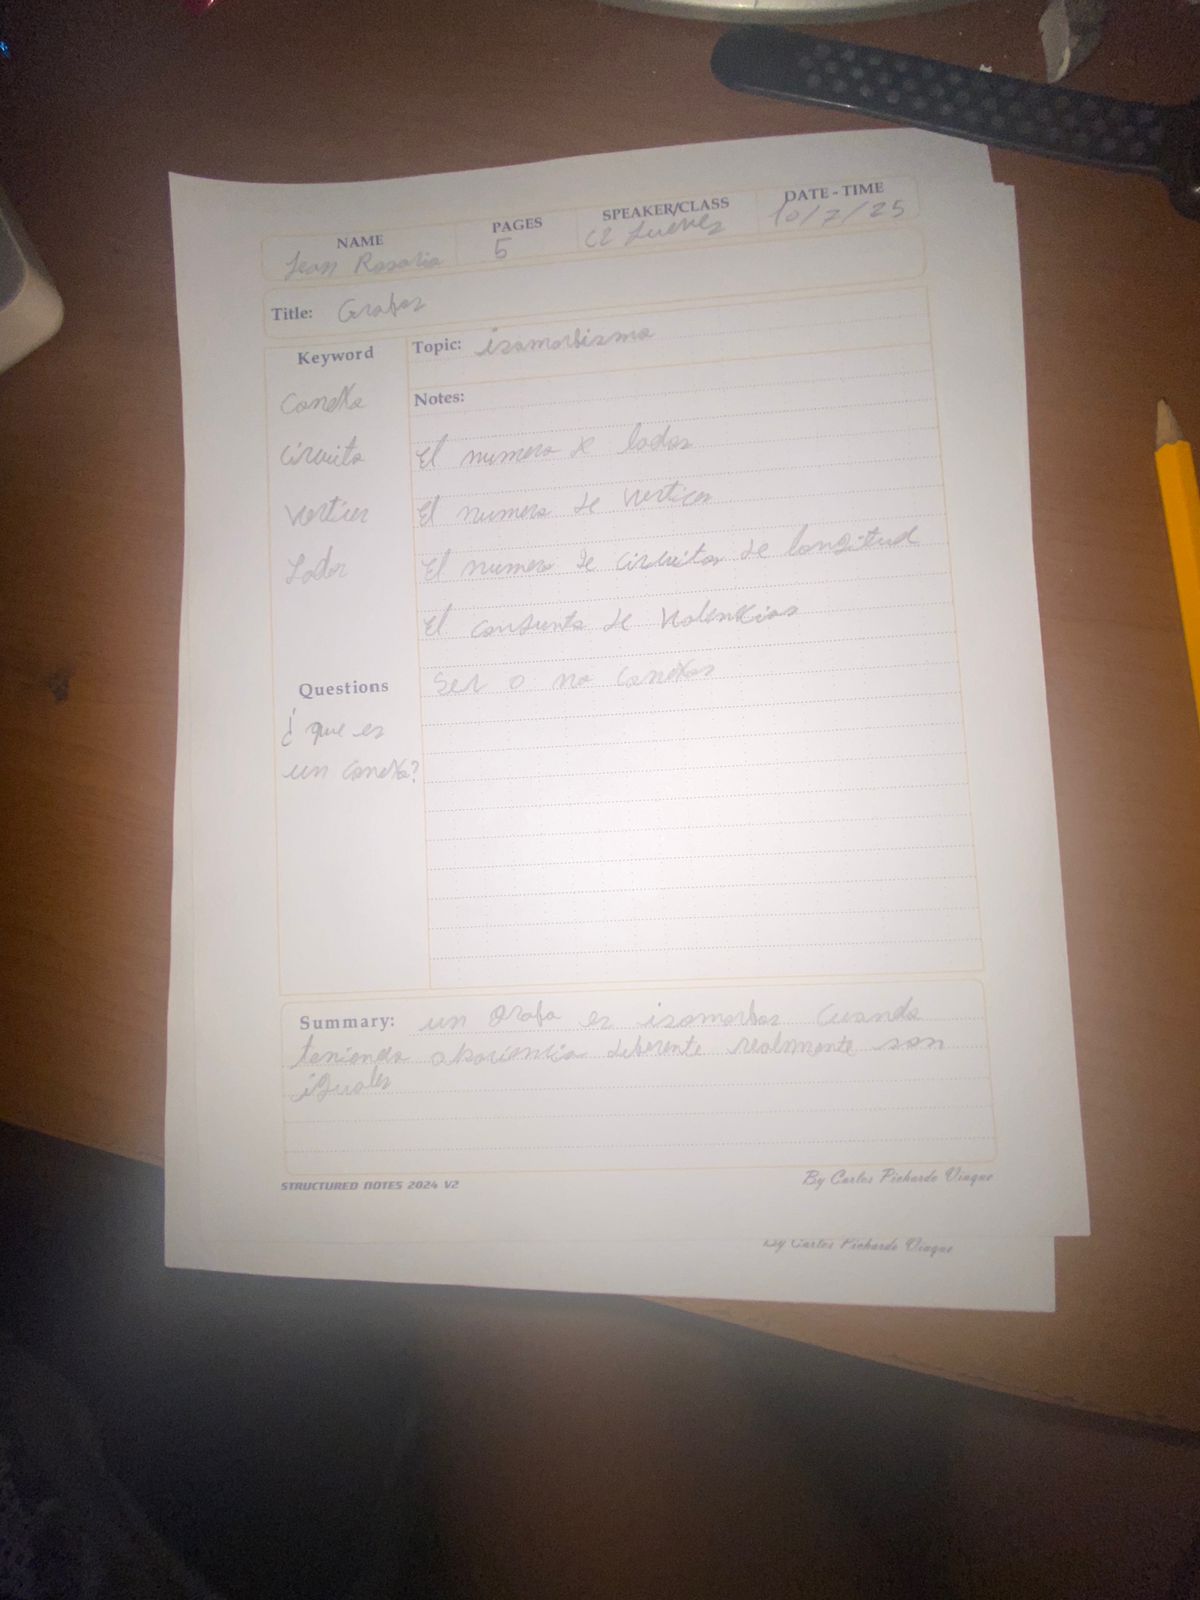 NAME
Jean Rosario
PAGES
5
SPEAKER/CLASS
C2 Jueves
DATE - TIME
10/7/25
Title: Grafos
Keyword
Conexo
Circuito
Vertices
Lados
Topic: isomorfismo
Notes:
El numero de lados
El numero de vertices
El numero de circuitos de longitud
El conjunto de valencias
Ser o no conexos
Questions
¿que es
un conexo?
Summary: un grafo es isomorfos cuando
teniendo apariencia diferente realmente son
iguales
STRUCTURED NOTES 2024 V2
By Carlos Pichardo Viuque
By Carlos Pichardo Viuque